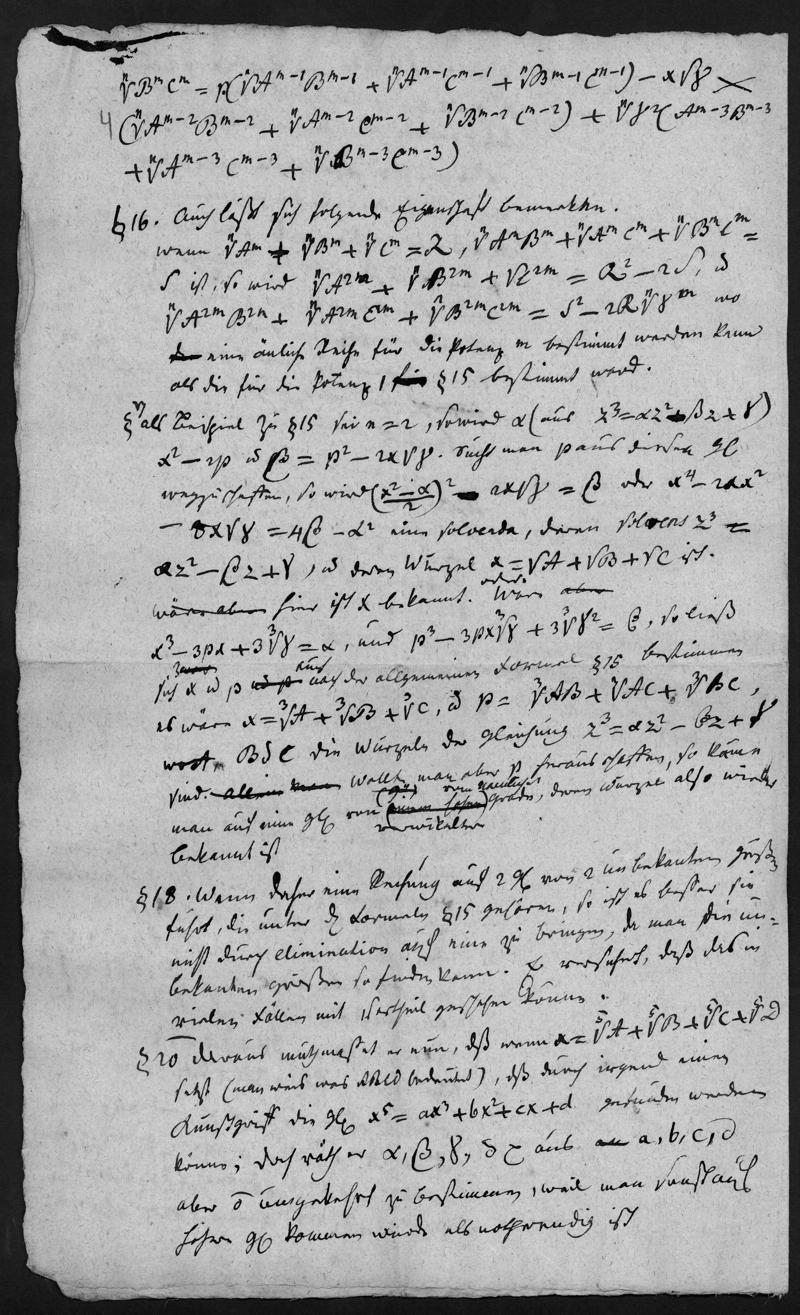 ⁿ√BᵐCᵐ = p(ⁿ√Aᵐ⁻¹Bᵐ⁻¹ + ⁿ√Aᵐ⁻¹Cᵐ⁻¹ + ⁿ√Bᵐ⁻¹Cᵐ⁻¹) − xⁿ√γ ×
4 (ⁿ√Aᵐ⁻²Bᵐ⁻² + ⁿ√Aᵐ⁻²Cᵐ⁻² + ⁿ√Bᵐ⁻²Cᵐ⁻²) + ⁿ√γ²(Aᵐ⁻³Bᵐ⁻³
+ ⁿ√Aᵐ⁻³Cᵐ⁻³ + ⁿ√Bᵐ⁻³Cᵐ⁻³)
§16. Auch läßt sich folgende Eigenschaft bemerken.
wenn ⁿ√Aᵐ + ⁿ√Bᵐ + ⁿ√Cᵐ = R, ⁿ√AᵐBᵐ + ⁿ√AᵐCᵐ + ⁿ√BᵐCᵐ =
S ist, so wird ⁿ√A²ᵐ + ⁿ√B²ᵐ + √C²ᵐ = R² − 2S, u
ⁿ√A²ᵐB²ᵐ + ⁿ√A²ᵐC²ᵐ + ⁿ√B²ᵐC²ᵐ = S² − 2Rⁿ√γᵐ wo
eine änliche Reihe für die Potenz m bestimmt werden kann
als die für die Potenz 1 §15 bestimmt ward.
§17 als Beispiel zu §15 sei n = 2, so wird α (aus z³ = αz² + βz + γ)
x² − 2p u β = p² − 2x√γ. Sucht man p aus diesen gl
wegzuschaffen, so wird (x² − α / 2)² − 2x√γ = β oder x⁴ − 2αx²
− 8x√γ = 4β − α² eine solvenda, deren solvens z³ =
αz² − βz + γ, u deren Wurzel x = √A + √B + √C ist.
hier ist x bekannt. Wäre
x³ − 3px + 3³√γ = α, und p³ − 3px³√γ + 3³√γ² = β, so ließ
sich x u p nach der allgemeinen Formel §15 bestimmen
es wäre x = ³√A + ³√B + ³√C, u p = ³√AB + ³√AC + ³√BC,
B u C die Wurzeln der Gleichung z³ = αz² − βz + γ
sind. wollte man aber p herausschaffen, so käme
man auf eine gl von verwikelten grade, deren Wurzel also wieder
bekannt ist
§18. Wenn daher eine Rechnung auf 2 gl von 2 unbekanten größen
führt, die unter d Formeln §15 gehören, so ist es besser sie
nicht durch elimination auf eine zu bringen, da man die un=
bekanten größen so finden kann. L versichert, daß das in
vielen Fällen mit Vortheil geschehen könne.
§20 Daraus muthmasset er nun, daß wenn x = ⁵√A + ⁵√B + ⁵√C + ⁵√D
setzt (man weis was ABCD bedeutet), daß durch irgend einen
Kunstgriff die gl x⁵ = ax³ + bx² + cx + d gefunden werden
könne; doch räth er α, β, γ, δ aus a, b, c, d
aber umgekehrt zu bestimmen, weil man sonst auf
höhere gl kommen würde als nothwendig ist